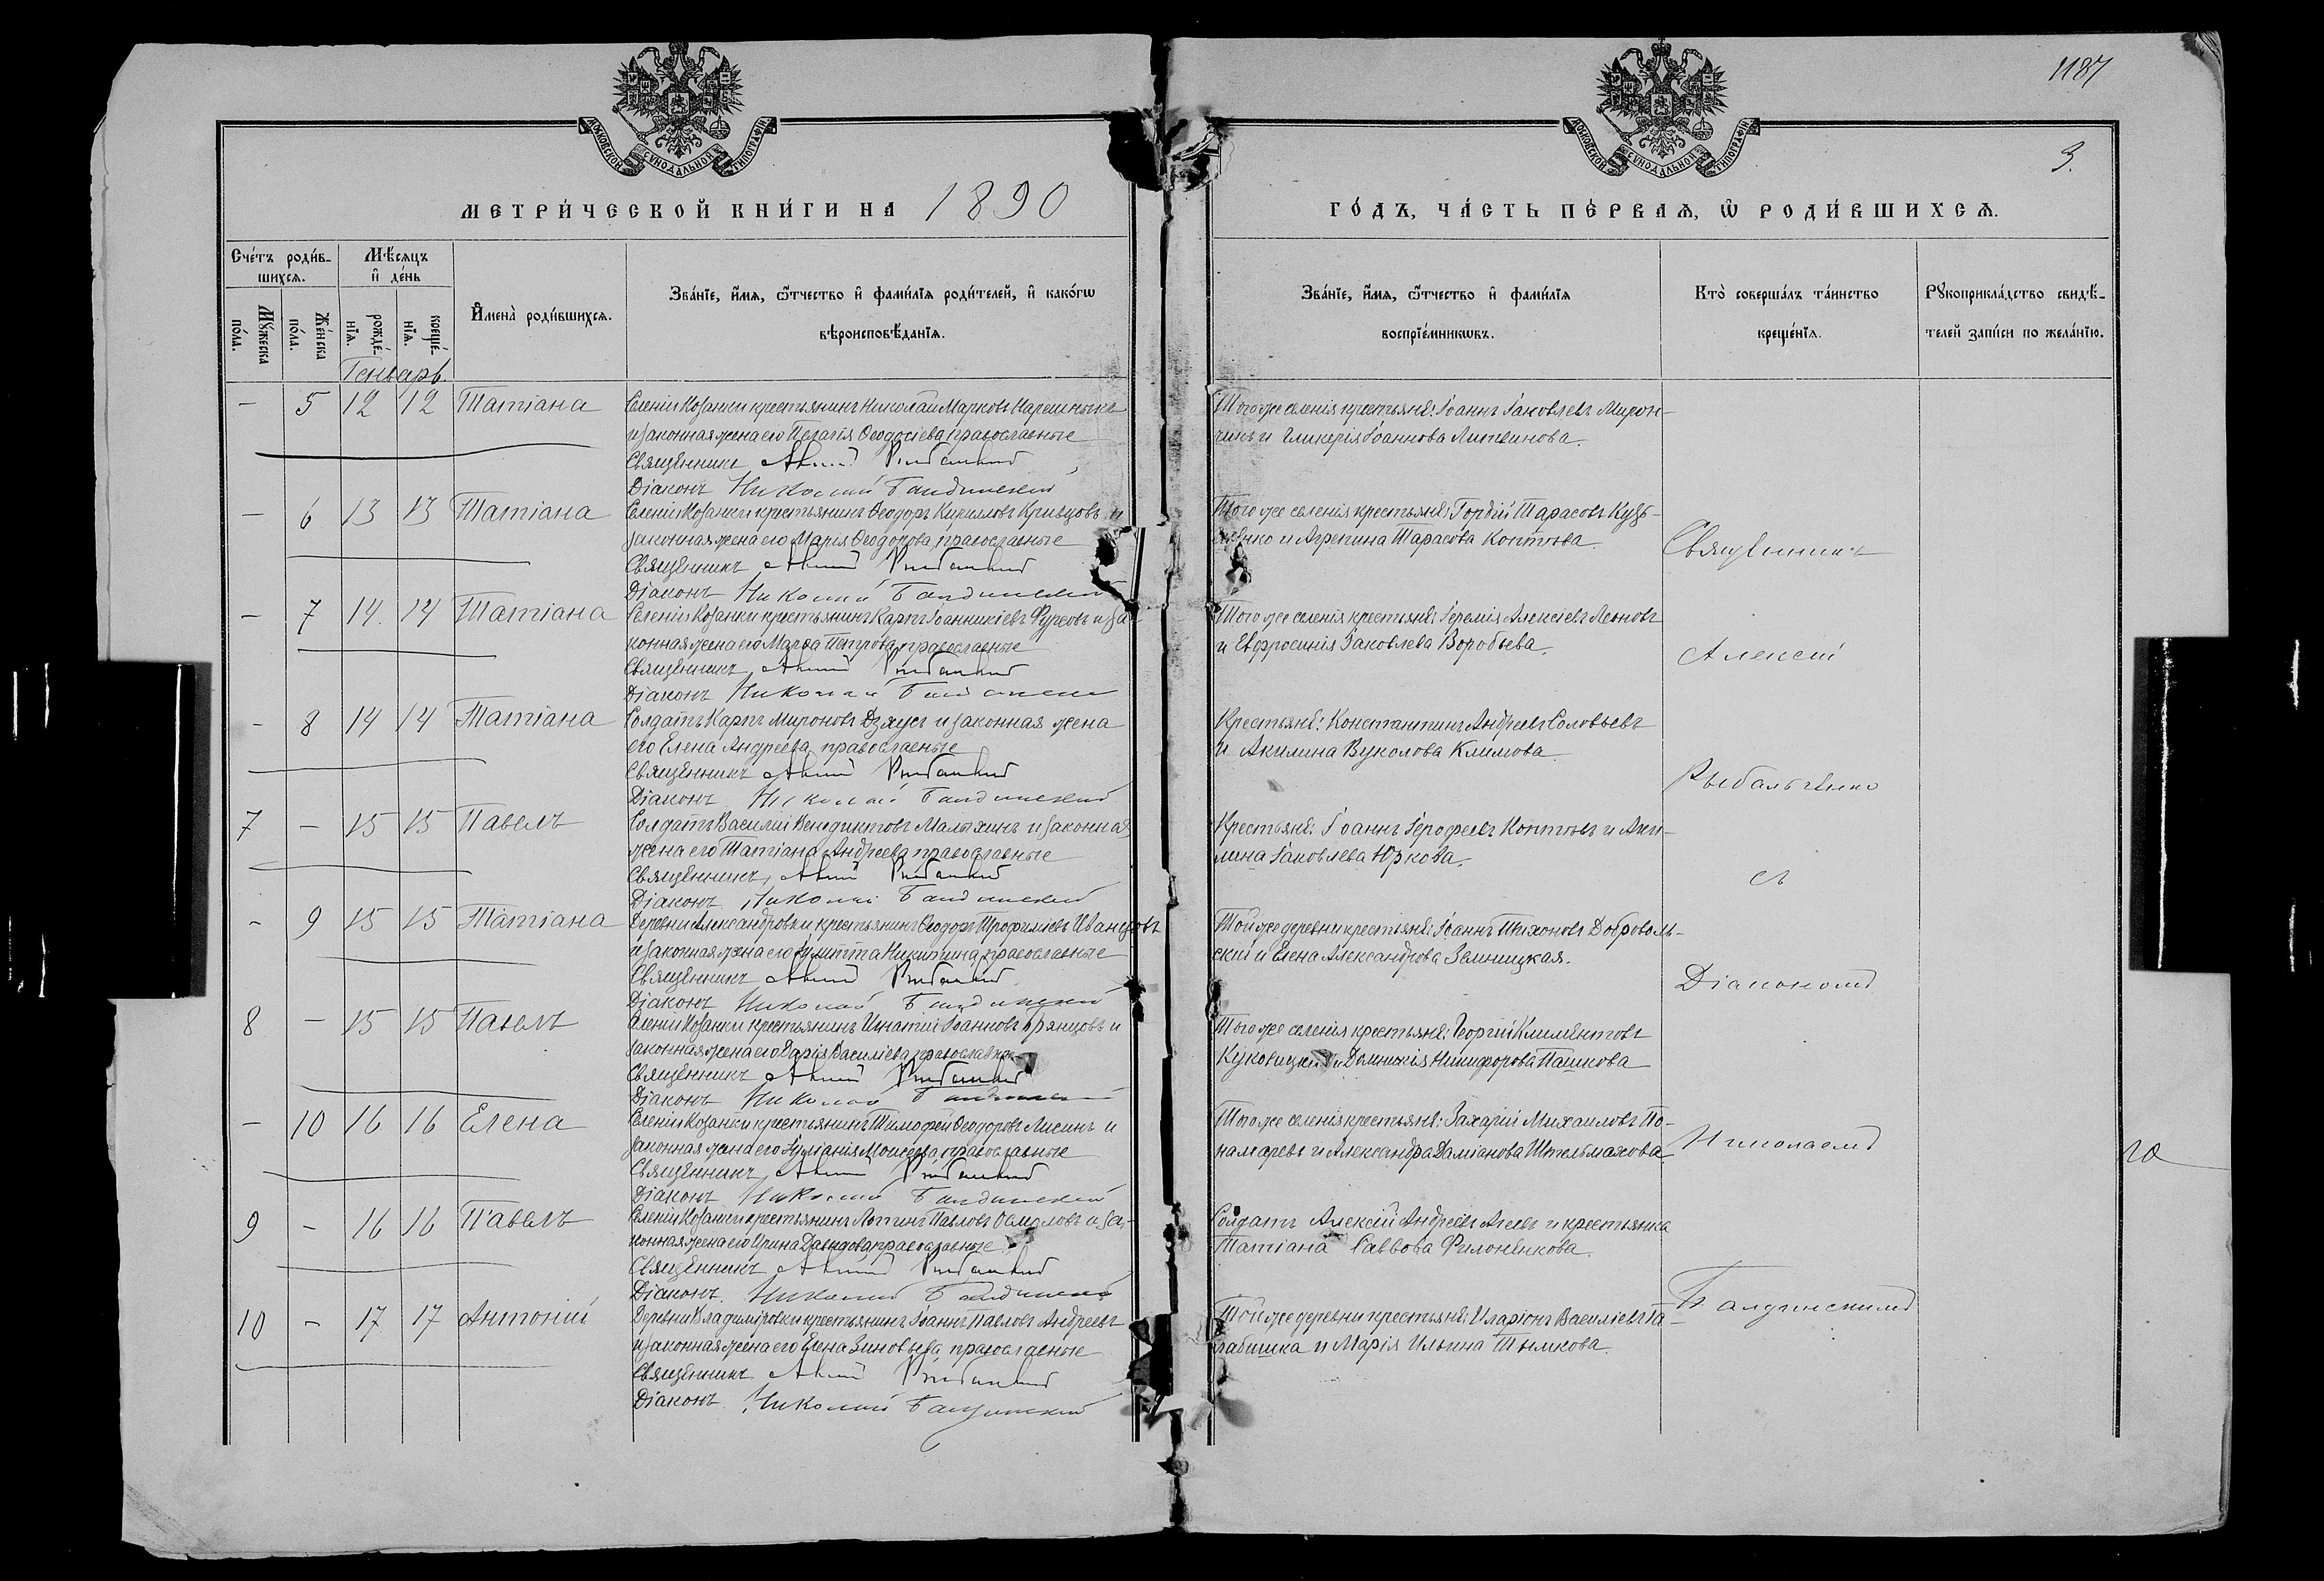 1187
МОСКОВСКОЙ СѴНОДАЛЬНОЙ ТИПОГРАФІИ
МОСКОВСКОЙ СѴНОДАЛЬНОЙ ТИПОГРАФІИ
3.
МЕТРИ́ЧЕСКОЙ КНИ́ГИ НА 1890
ГО́ДЪ, ЧА́СТЬ ПЕ́РВАѦ, Ѡ҆ РОДИ́ВШИХСѦ.
Сче́тъ роди́в-
шихсѧ.
Мѣ́сѧцъ
и҆ де́нь
Мꙋ́жеска
по́ла.
Же́нска
по́ла.
рожде́-
нїѧ.
креще́-
нїѧ.
И҆мена̀ роди́вшихсѧ.
Зва́нїе, и҆́мѧ, ѻ҆́тчество и҆ фами́лїѧ роди́телей, и҆ како́гѡ
вѣроисповѣ́данїѧ.
Зва́нїе, и҆́мѧ, ѻ҆́тчество и҆ фами́лїѧ
воспрїе́мникѡвъ.
Кто̀ соверша́лъ та́инство
креще́нїѧ.
Рꙋкоприкла́дство свидѣ́-
телей за́писи по жела́нїю.
Генварь
- 5 12 12 Татіана Селенія Козанки крестьянинъ Николай Марковъ
и законная жена его Пелагія Ѳеодосіева, православные
Священникъ
Діаконъ Николай Балдинскій
Того же селенія крестьяне: Іоаннъ Іаковлевъ Мирон-
чикъ и Гликерія Іоаннова Литвинова.
- 6 13 13 Татіана Селенія Козанки крестьянинъ Ѳеодоръ Кирилловъ Кривцовъ и
законная жена его Марія Ѳеодорова, православные
Священникъ
Діаконъ Николай Балдинскій
Того же селенія крестьяне: Гордій Тарасовъ Кузь-
менко и Агрепина Тарасова Коптева.
- 7 14 14 Татіана Селенія Козанки крестьянинъ Карпъ Іоанникіевъ Фурсовъ и за-
конная жена его Марѳа Петрова, православные
Священникъ
Діаконъ Николай
Того же селенія крестьяне: Іеремія Алексіевъ Леоновъ
и Евфросинія Іаковлева Воробьева.
- 8 14 14 Татіана Солдатъ Карпъ Мироновъ Дзяусъ и законная жена
его Елена Андреева, православные
Священникъ
Діаконъ Николай Балдинскій
Крестьяне: Константинъ Андреевъ Соловьевъ
и Акилина Вуколова Климова.
7 - 15 15 Павелъ Солдатъ Василій Венедиктовъ Малыхинъ и законная
жена его Татіана Андреева, православные
Священникъ
Діаконъ Николай Балдинскій
Крестьяне: Іоаннъ Іерофеевъ Коптевъ и Аки-
лина Іаковлева Юркова.
- 9 15 15 Татіана Деревни Александровки крестьянинъ Ѳеодоръ Трофимовъ Иванцовъ
и законная жена его Іулитта Никитина, православные
Священникъ
Діаконъ Николай Балдинскій
Той же деревни крестьяне: Іоаннъ Тихоновъ Доброволь-
скій и Елена Александрова Земницкая.
8 - 15 15 Павелъ Селенія Козанки крестьянинъ Игнатій Іоанновъ Брянцовъ и
законная жена его Дарія Василіева, православные
Священникъ
Діаконъ Николай
Того же селенія крестьяне: Георгій Климентовъ
Куковицкій и Домникія Никифорова Пашкова
- 10 16 16 Елена Селенія Козанки крестьянинъ Тимофей Ѳеодоровъ Лисинъ и
законная жена его Іуліанія Моисеева, православные
Священникъ
Діаконъ Николай Балдинскій
Того же селенія крестьяне: Захарій Михаиловъ По-
намаревъ и Александра Даміанова Штельмахова.
9 - 16 16 Павелъ Селенія Козанки крестьянинъ Логинъ Павловъ и за-
конная жена его Ирина Давидова, православные
Священникъ
Діаконъ Николай Балдинскій
Солдатъ Алексій Андреевъ Агеевъ и крестьянка
Татіана Саввова Филоненкова.
10 - 17 17 Антоній Деревни Владиміровки крестьянинъ Іоаннъ Павловъ Андреевъ
и законная жена его Елена Зиновьева, православные
Священникъ
Діаконъ Николай Балдинскій
Той же деревни крестьяне: Иларіонъ Василіевъ
и Марія Ильина Тымкова.
Священникъ
Алексій
Рыбальченко
съ
Діакономъ
Николаемъ
Балдинскимъ